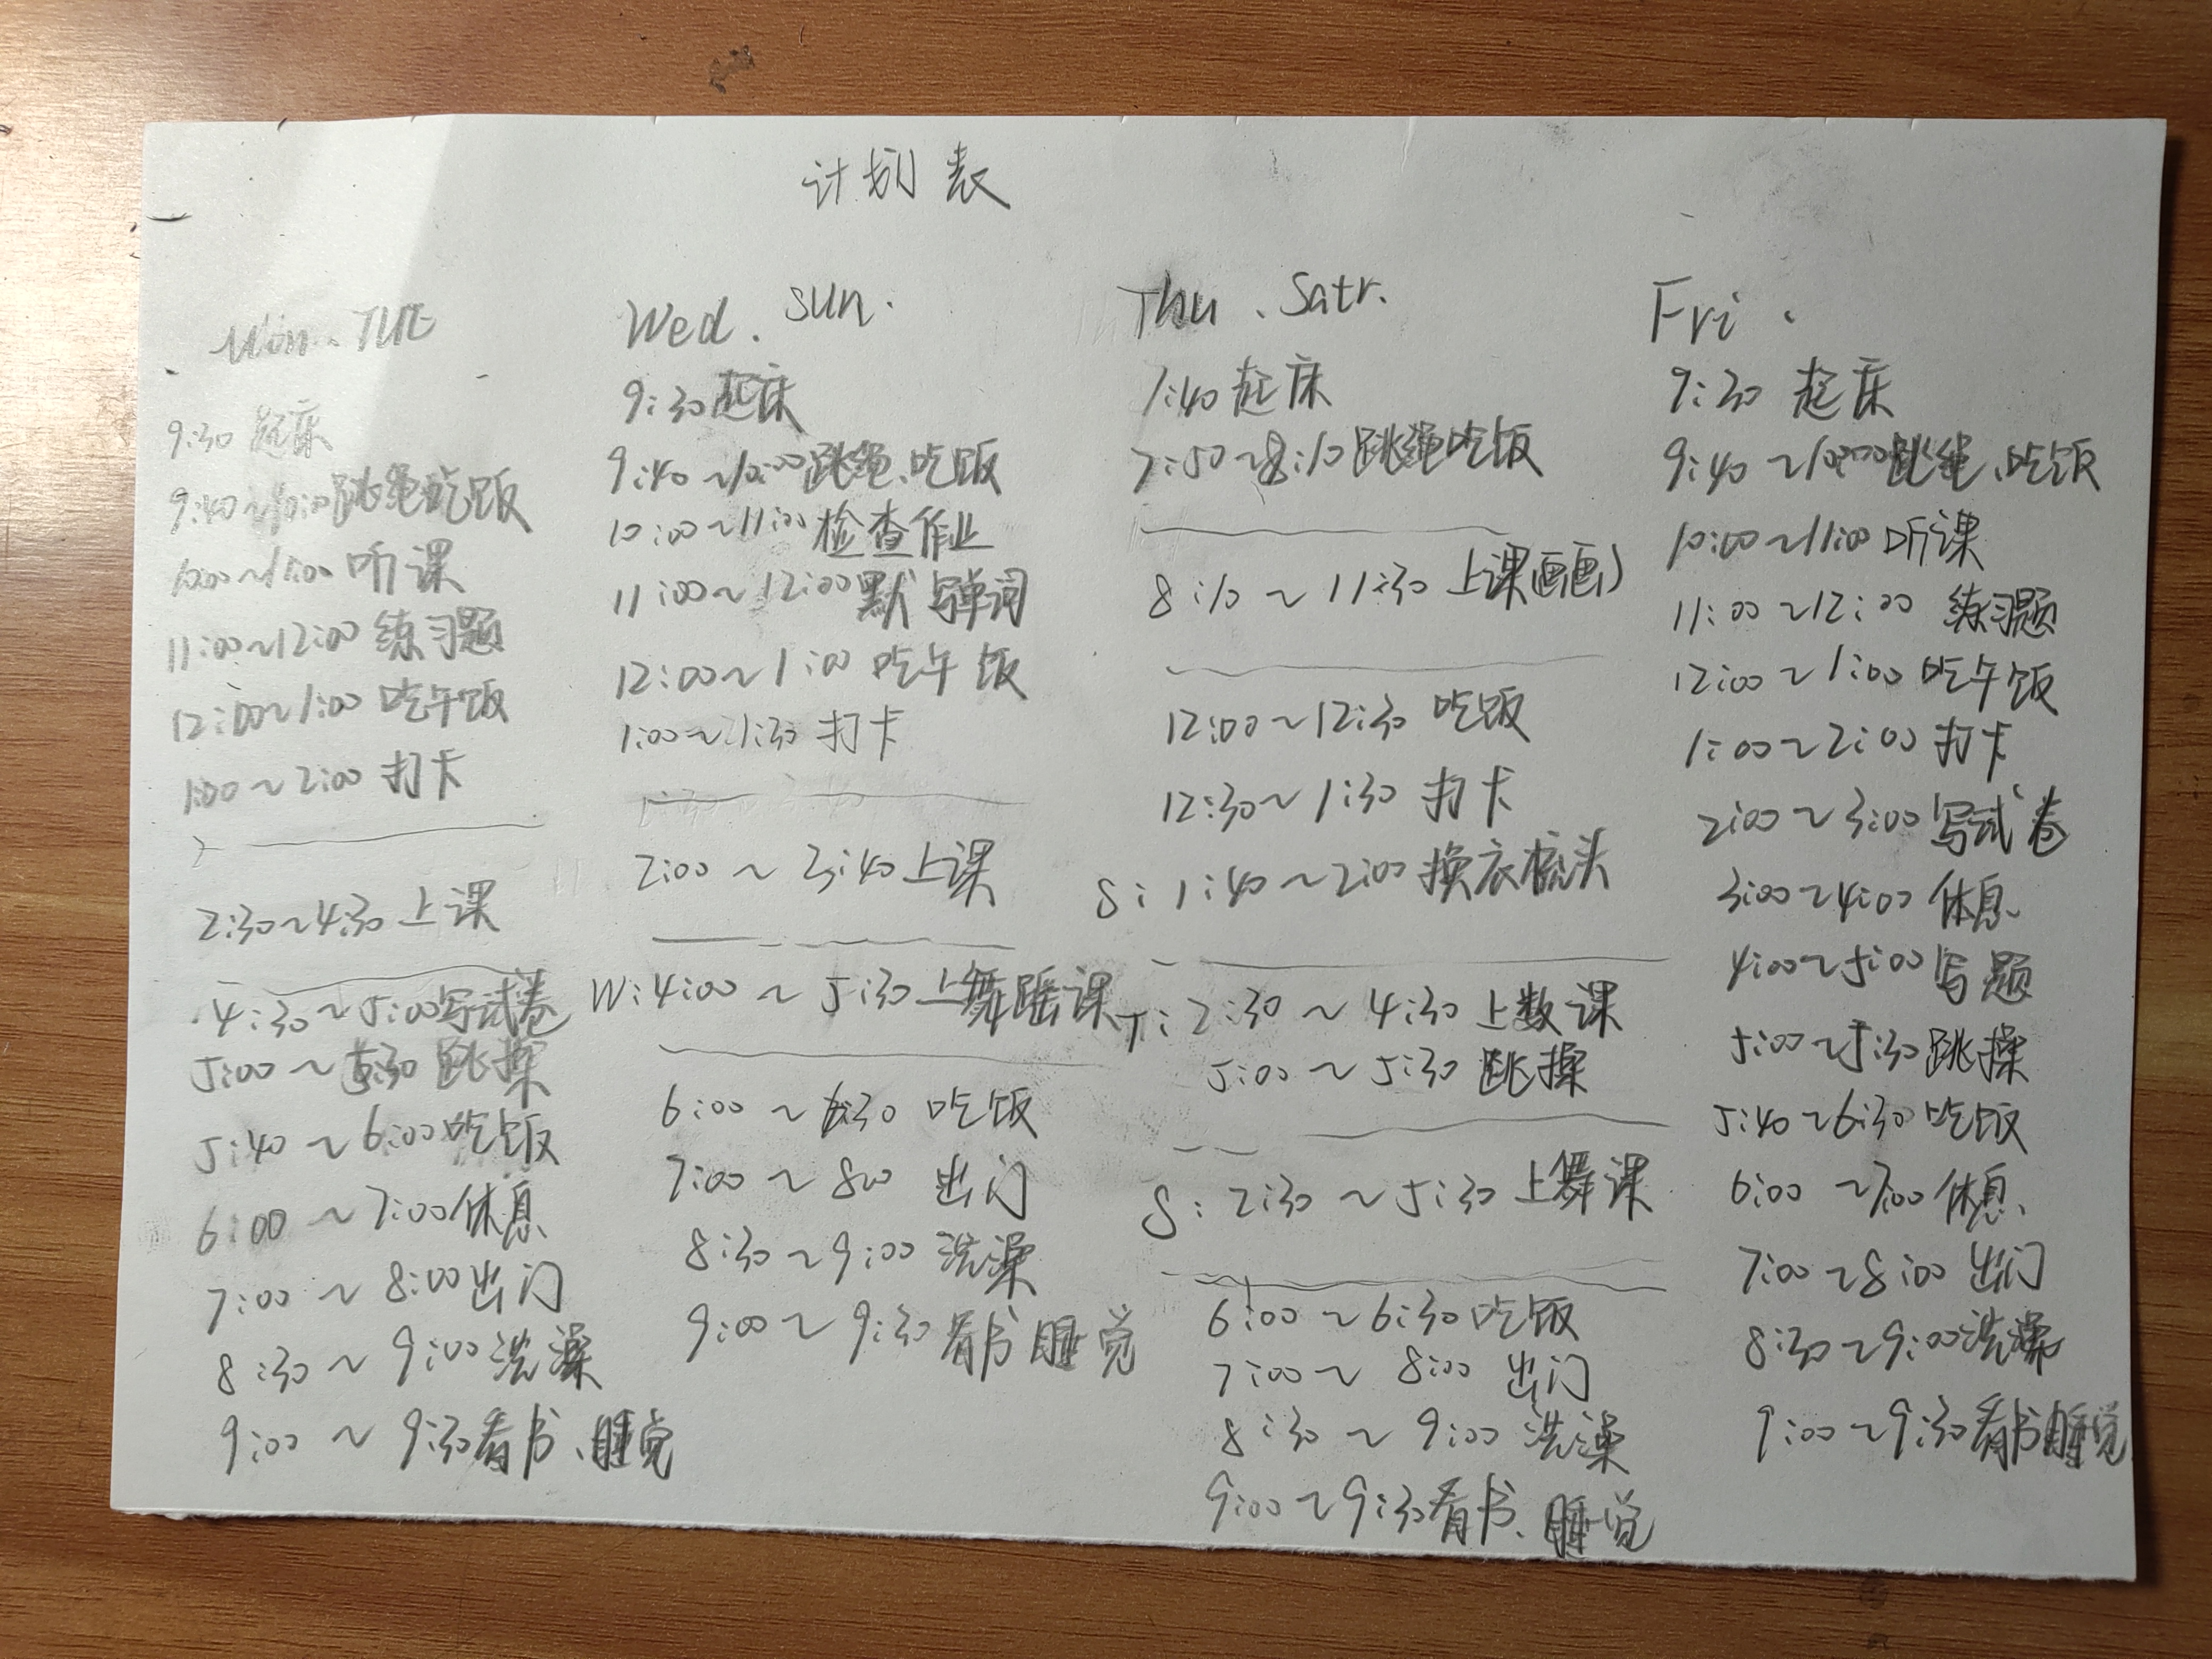 计划表
Mon. TUE
9:30 起床
9:40~10:00跳绳吃饭
10:00~11:00 听课
11:00~12:00 练习题
12:00~1:00 吃午饭
1:00~2:00 打卡
2:30~4:30 上课
4:30~5:00写试卷
5:00~5:30 跳操
5:40~6:00吃饭
6:00~7:00休息
7:00~8:00出门
8:30~9:00洗澡
9:00~9:30看书、睡觉
Wed. Sun.
9:30起床
9:40~10:00跳绳、吃饭
10:00~11:00 检查作业
11:00~12:00默写单词
12:00~1:00 吃午饭
1:00~1:30 打卡
2:00~3:40上课
W:4:00~5:30上舞蹈课
6:00~6:30 吃饭
7:00~8:00 出门
8:30~9:00 洗澡
9:00~9:30 看书睡觉
Thu. Satr.
7:40起床
7:50~8:10跳绳吃饭
8:10~11:30 上课(画画)
12:00~12:30 吃饭
12:30~1:30 打卡
S:1:40~2:00换衣梳头
T:2:30~4:30上数课
5:00~5:30 跳操
S:2:30~5:30上舞课
6:00~6:30吃饭
7:00~8:00 出门
8:30~9:00 洗澡
9:00~9:30看书、睡觉
Fri.
9:30 起床
9:40~10:00跳绳、吃饭
10:00~11:00 听课
11:00~12:00 练习题
12:00~1:00吃午饭
1:00~2:00 打卡
2:00~3:00写试卷
3:00~4:00 休息
4:00~5:00写题
5:00~5:30跳操
5:40~6:30吃饭
6:00~7:00休息
7:00~8:00 出门
8:30~9:00洗澡
9:00~9:30看书睡觉